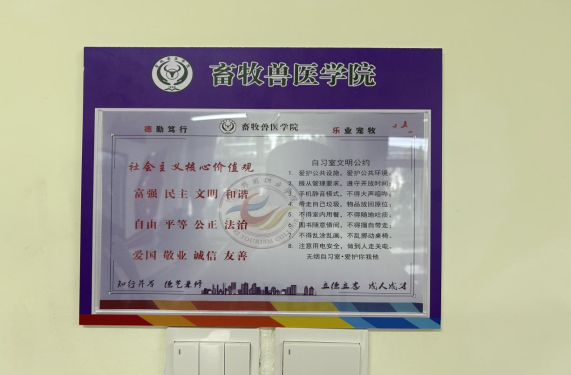 畜牧兽医学院
德勤笃行 畜牧兽医学院 乐业宠牧
社会主义核心价值观
富强 民主 文明 和谐
自由 平等 公正 法治
爱国 敬业 诚信 友善
自习室文明公约
1. 爱护公共设施，爱护公共环境；
2. 服从管理要求，遵守开放时间；
3. 手机静音模式，不得大声喧哗；
4. 带走自己垃圾，物品放回原位；
5. 不得室内用餐，不得随地吐痰；
6. 图书随意借阅，不得擅自带走；
7. 不得乱涂乱画，不乱挪动桌椅；
8. 注意用电安全，做到人走关电；
无烟自习室•爱护你我他
知行并举 德艺兼修
立德立志 成人成才